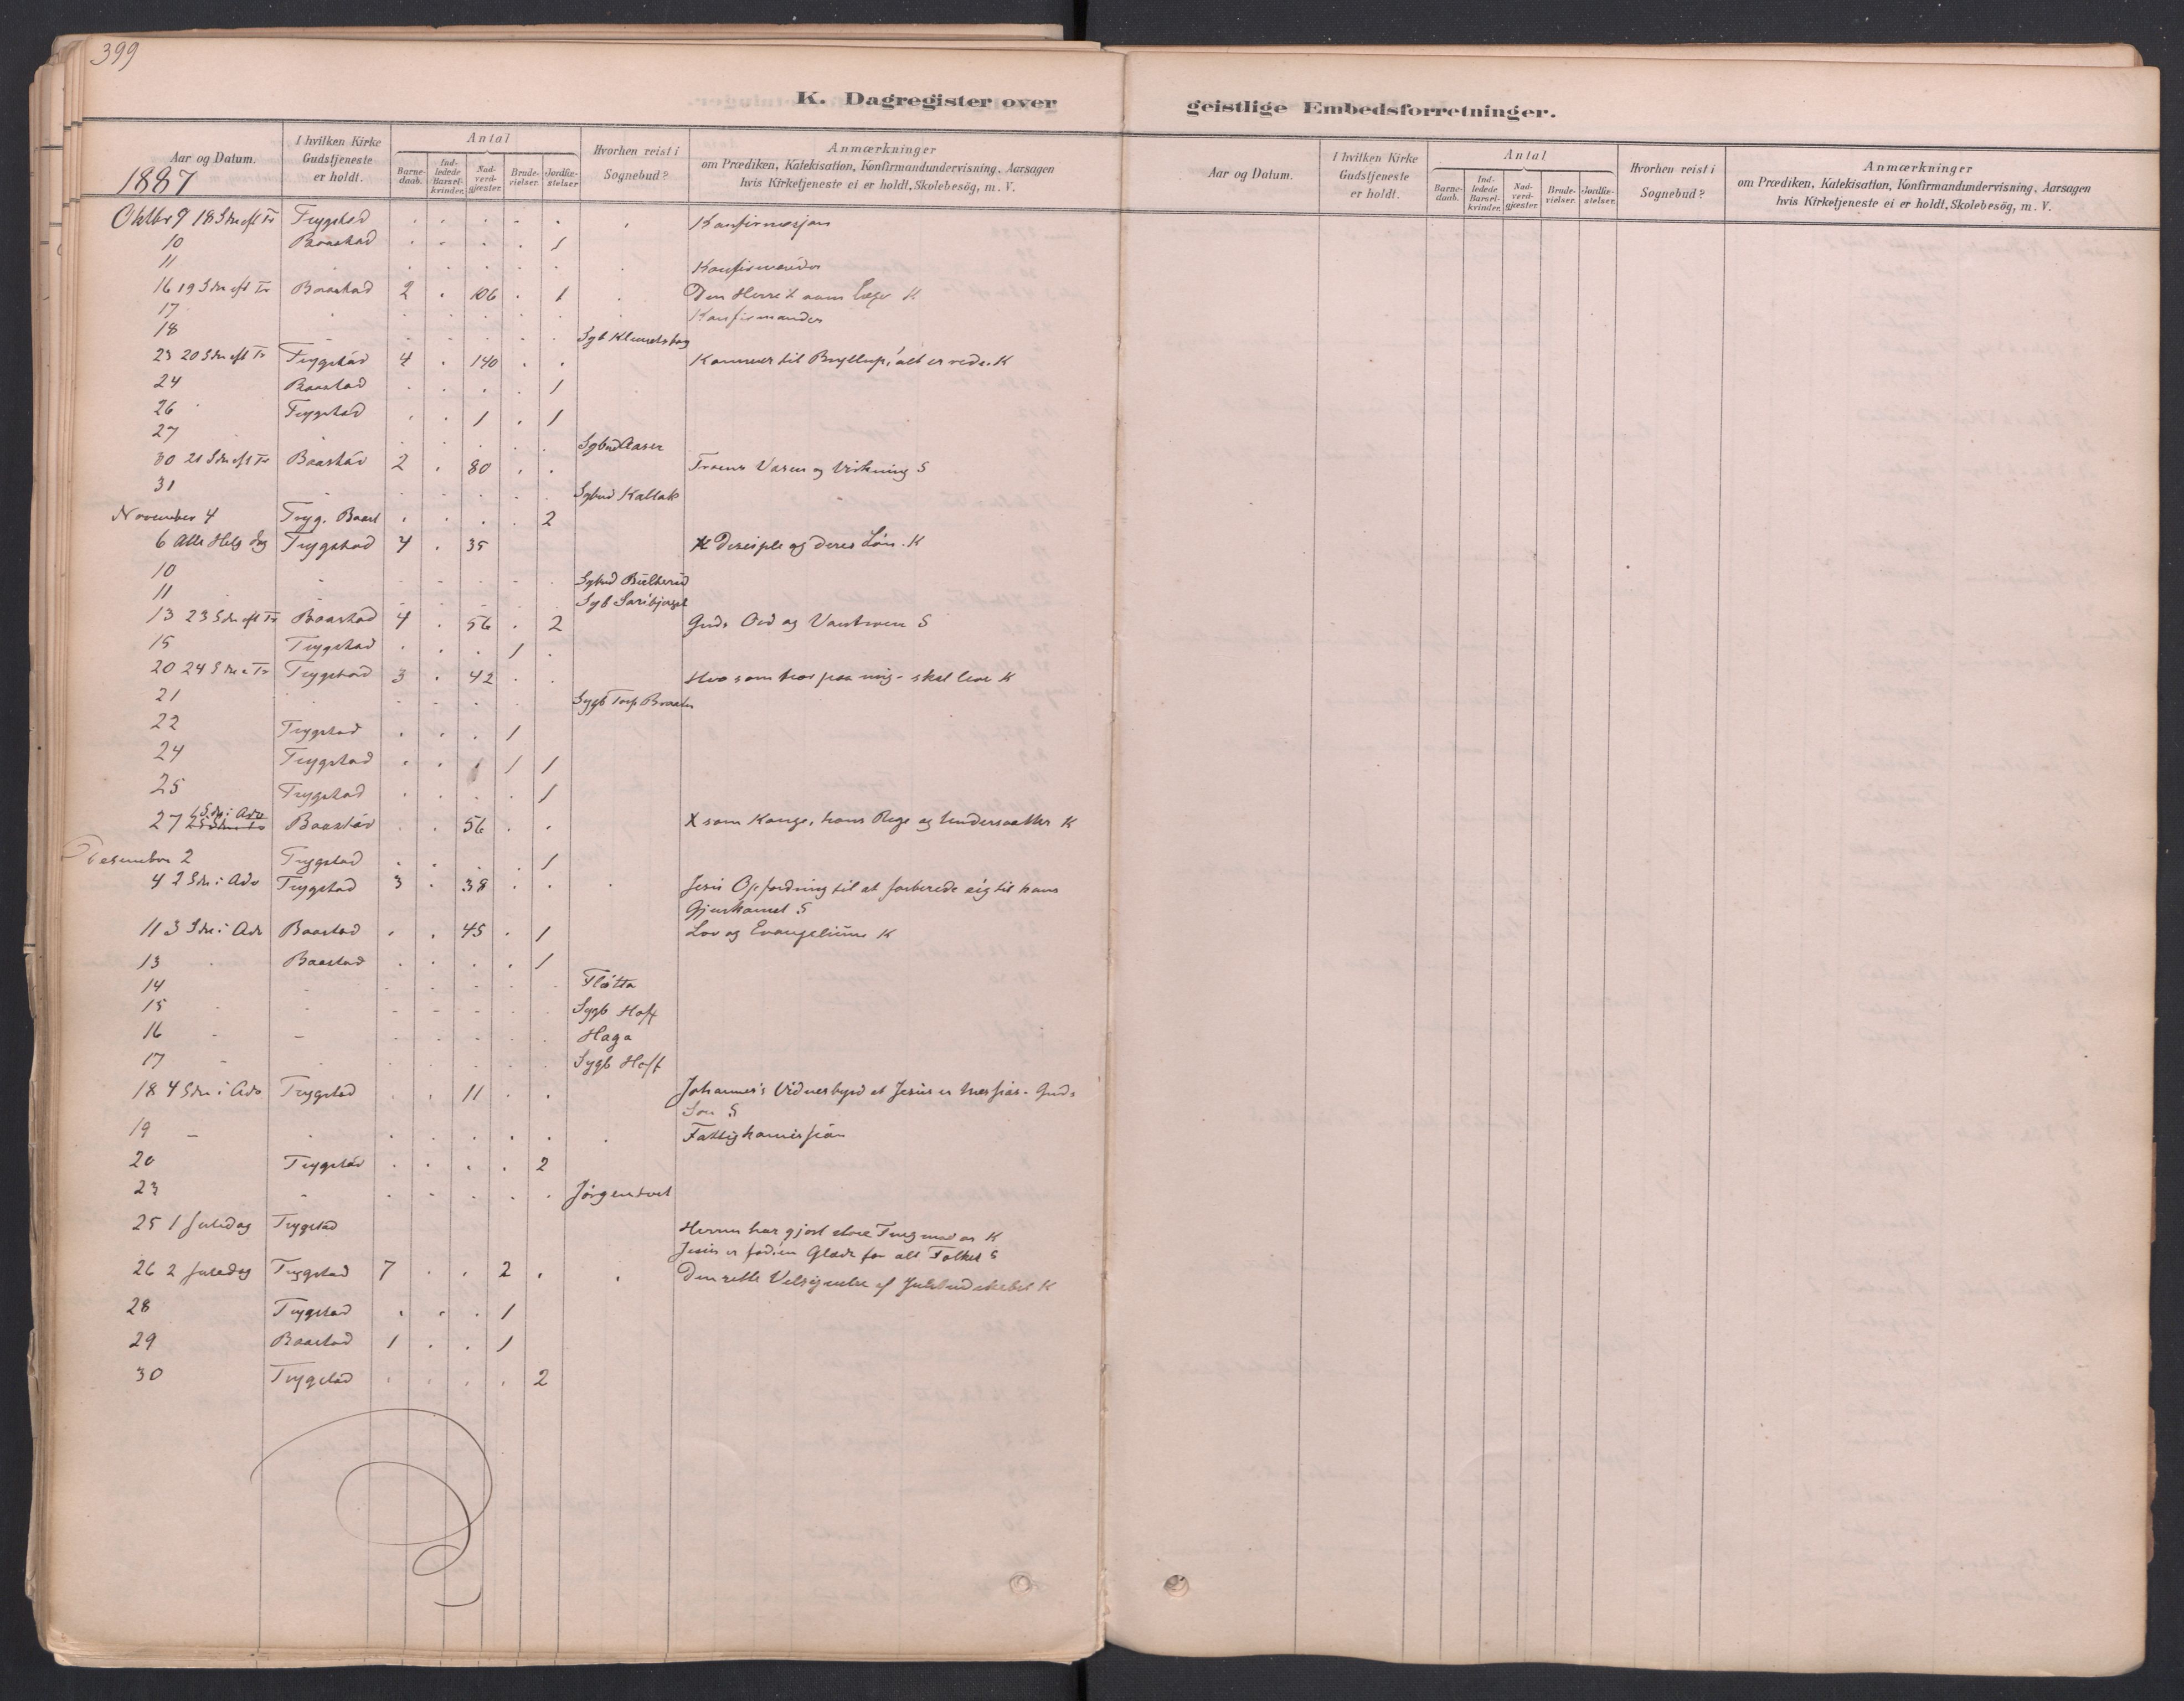 399
K. Dagregister over geistlige Embedsforretninger.
Aar og Datum. I hvilken Kirke Gudstjeneste er holdt. Antal Barnedaab. Indledede Barselkvinder. Nadverdgjæster. Brudevielser. Jordfæstelser. Hvorhen reist i Sognebud? Anmærkninger om Prædiken, Katekisation, Konfirmandundervisning, Aarsagen hvis Kirketjeneste ei er holdt, Skolebesög, m. V.
1887
Oktbr 9 18 Sdn eft Tr Trygstad . . . . . . Konfirmasjon
10 Baastad . . . . 1
11 . . . . . . Konfirmander
16 19 Sdn eft Tr Baastad 2 . 106 . 1 . Den Herre X som Læge K
17 . . . . . . Konfirmander
18 . . . . . Sgb
23 20 Sdn eft Tr Trygstad 4 . 140 . . Kommer til Bryllup, alt er rede. K
24 Baastad . . . . 1
26 Trygstad . . 1 . 1
27 . . . . . Sgbud Aaser
30 21 Sdn eft Tr Baastad 2 . 80 . . Troens Væsen og Virkning S
31 . . . . . Sgbud Kallak
November 4 Tryg. Baast . . . . 2
6 Alle Helg Dag Trygstad 4 . 35 Disciple og deres Løn. K
10 - - - - - . Sgbud
11 . . . . . Sgb
13 23 Sdn eft Tr Baastad 4 . 56 . 2 Guds Ord og Vantroen S
15 Trygstad . . . 1 .
20 24 Sdn e Tr Trygstad 3 . 42 . . Hvo som tror paa mig - skal leve K
21 . . . . . Sygb Torp Braaten
22 Trygstad . . . 1
24 Trygstad . . 1 1
25 Trygstad . . . . 1
27 1 Sdn i Adv Baastad . . 56 . . X som Konge, hans Rige og Undersaatter K
Desember 2 Trygstad . . . . 1
4 2 Sdn i Adv Trygstad 3 . 38 . . . Jesu Opfordring til at forberede sig til hans
Gjenkomst S
11 3 Sdn i Adv Baastad . . 45 . 1 Lov og Evangelium K
13 . Baastad . . . . 1
14 - - - - - - . Fløtta
15 - - - - . . Sygb Hoff
16 - - - - . . . Haga
17 - . . . . . . Sygb Hoff
18 4 Sdn i Adv Trygstad . . 11 . . Johannes's Vidnesbyrd at Jesus er Messias - Guds
Søn S
19 - . . . . . . . Fattigkomission
20 Trygstad . . . . 2
23 - . . . . . Jørgentvet
25 1 Juledag Trygstad Herren har gjort store Ting mod os K
Jesus er født en Glæde for alt Folket S
26 2 Juledag Trygstad 7 . . 2 . . Den rette Velsignelse af Julebudskabet K
28 Trygstad . . . 1
29 Baastad 1 . . 1
30 Trygstad . . . . 2
Aar og Datum. I hvilken Kirke Gudstjeneste er holdt. Antal Barnedaab. Indledede Barselkvinder. Nadverdgjæster. Brudevielser. Jordfæstelser. Hvorhen reist i Sognebud? Anmærkninger om Prædiken, Katekisation, Konfirmandundervisning, Aarsagen hvis Kirketjeneste ei er holdt, Skolebesög, m. V.